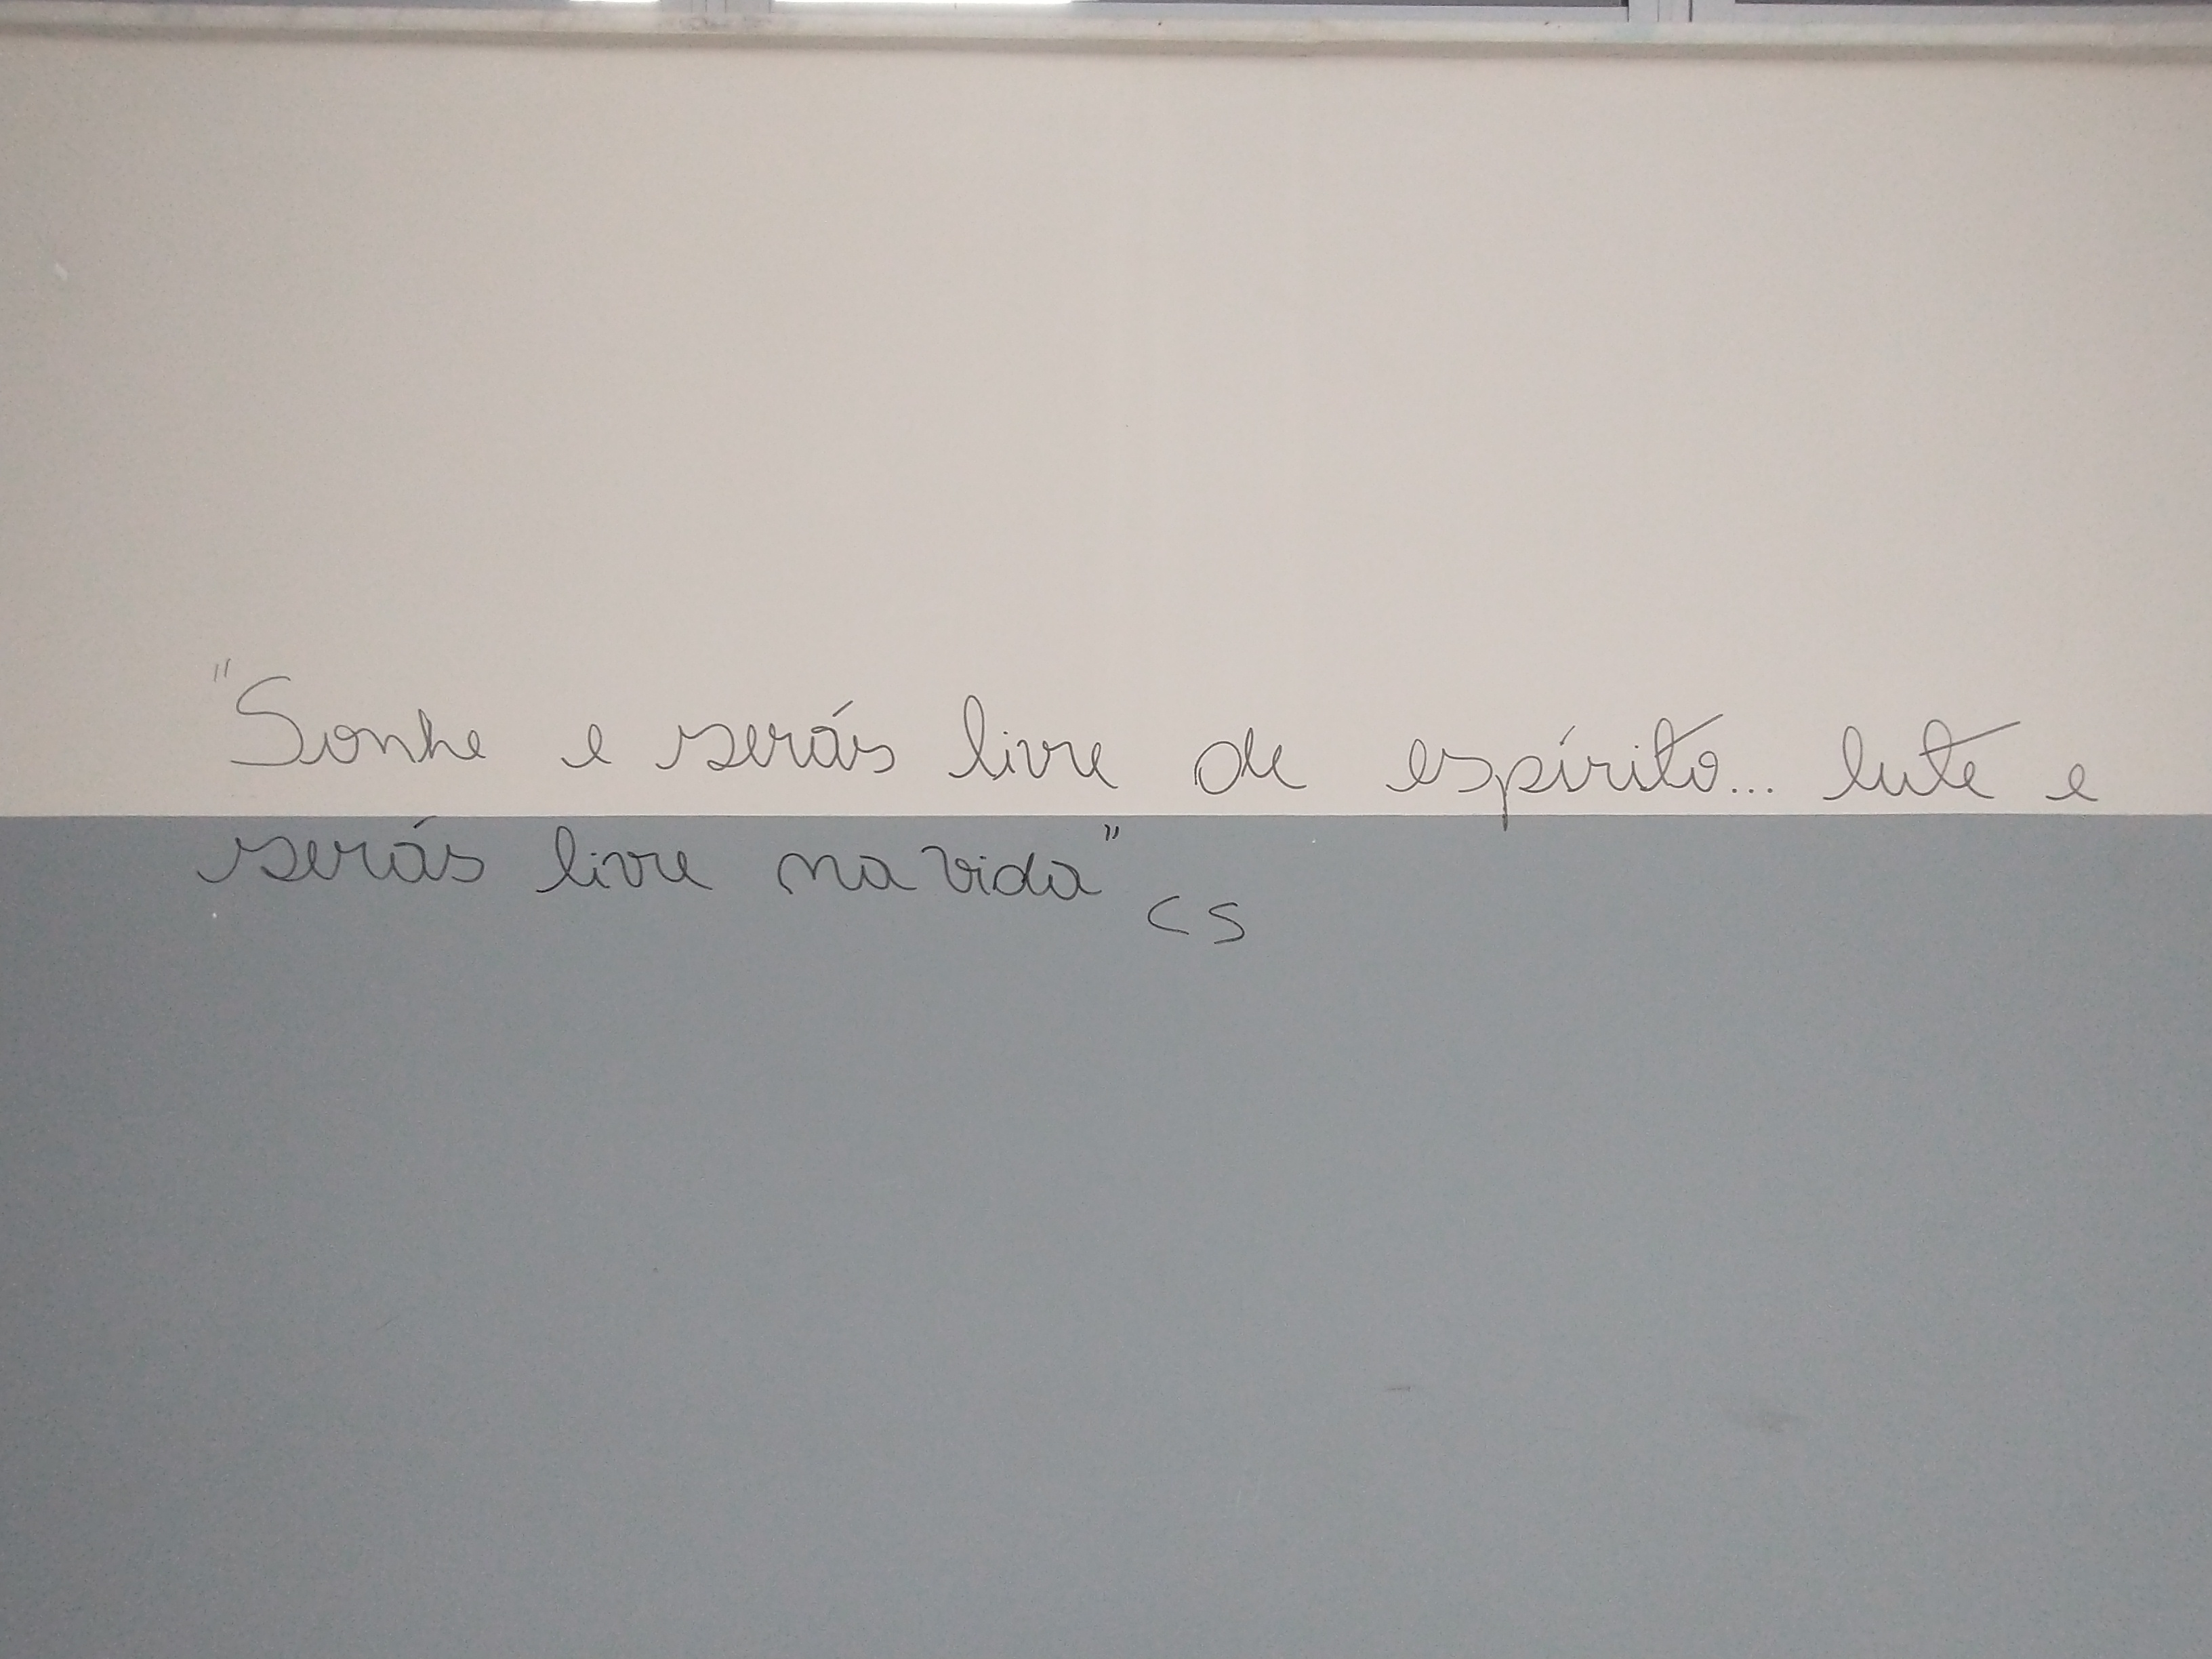 "Sonhe e serás livre de espírito... lute e
serás livre na vida"
CS